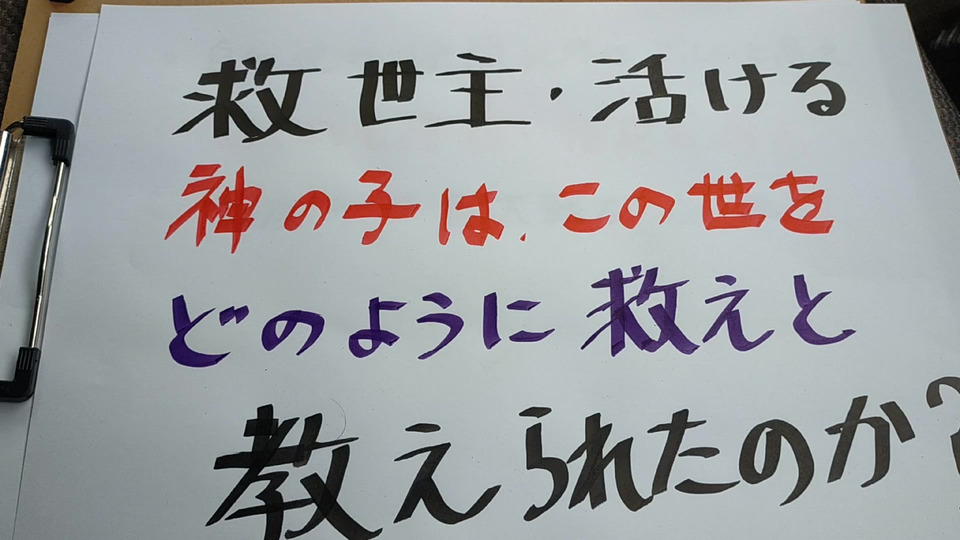 救世主・活ける
神の子は、この世を
どのように救えと
教えられたのか?